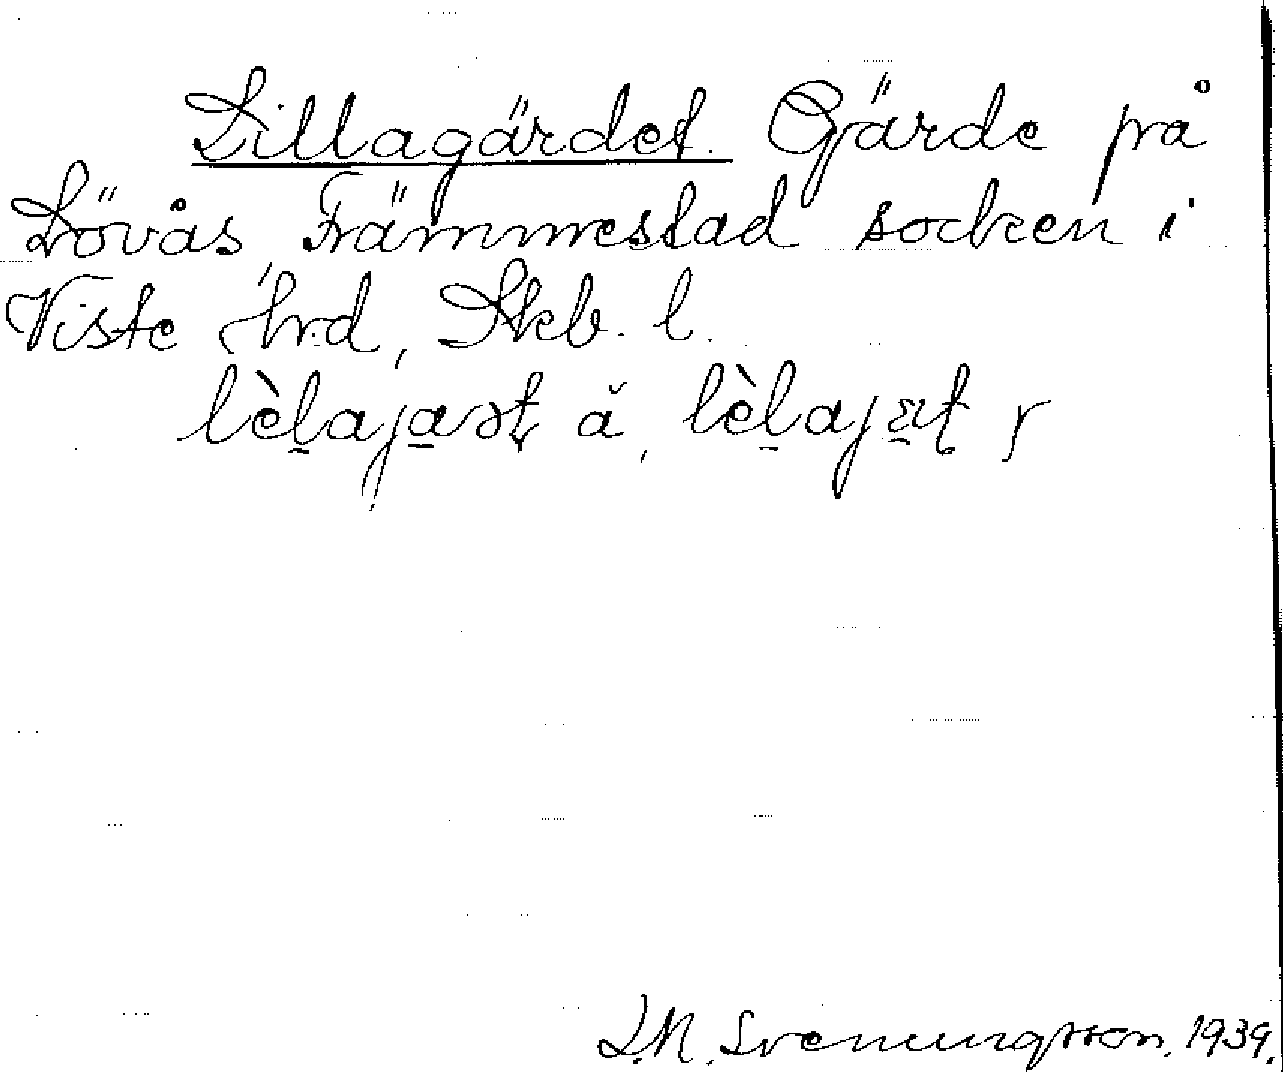 Lillagärdet. Gärde på
Lövås, Främmestad socken i
Viste hrd, Skb. l.
lèlajaət ă, lèlajæt
Svenungsson. 1939.